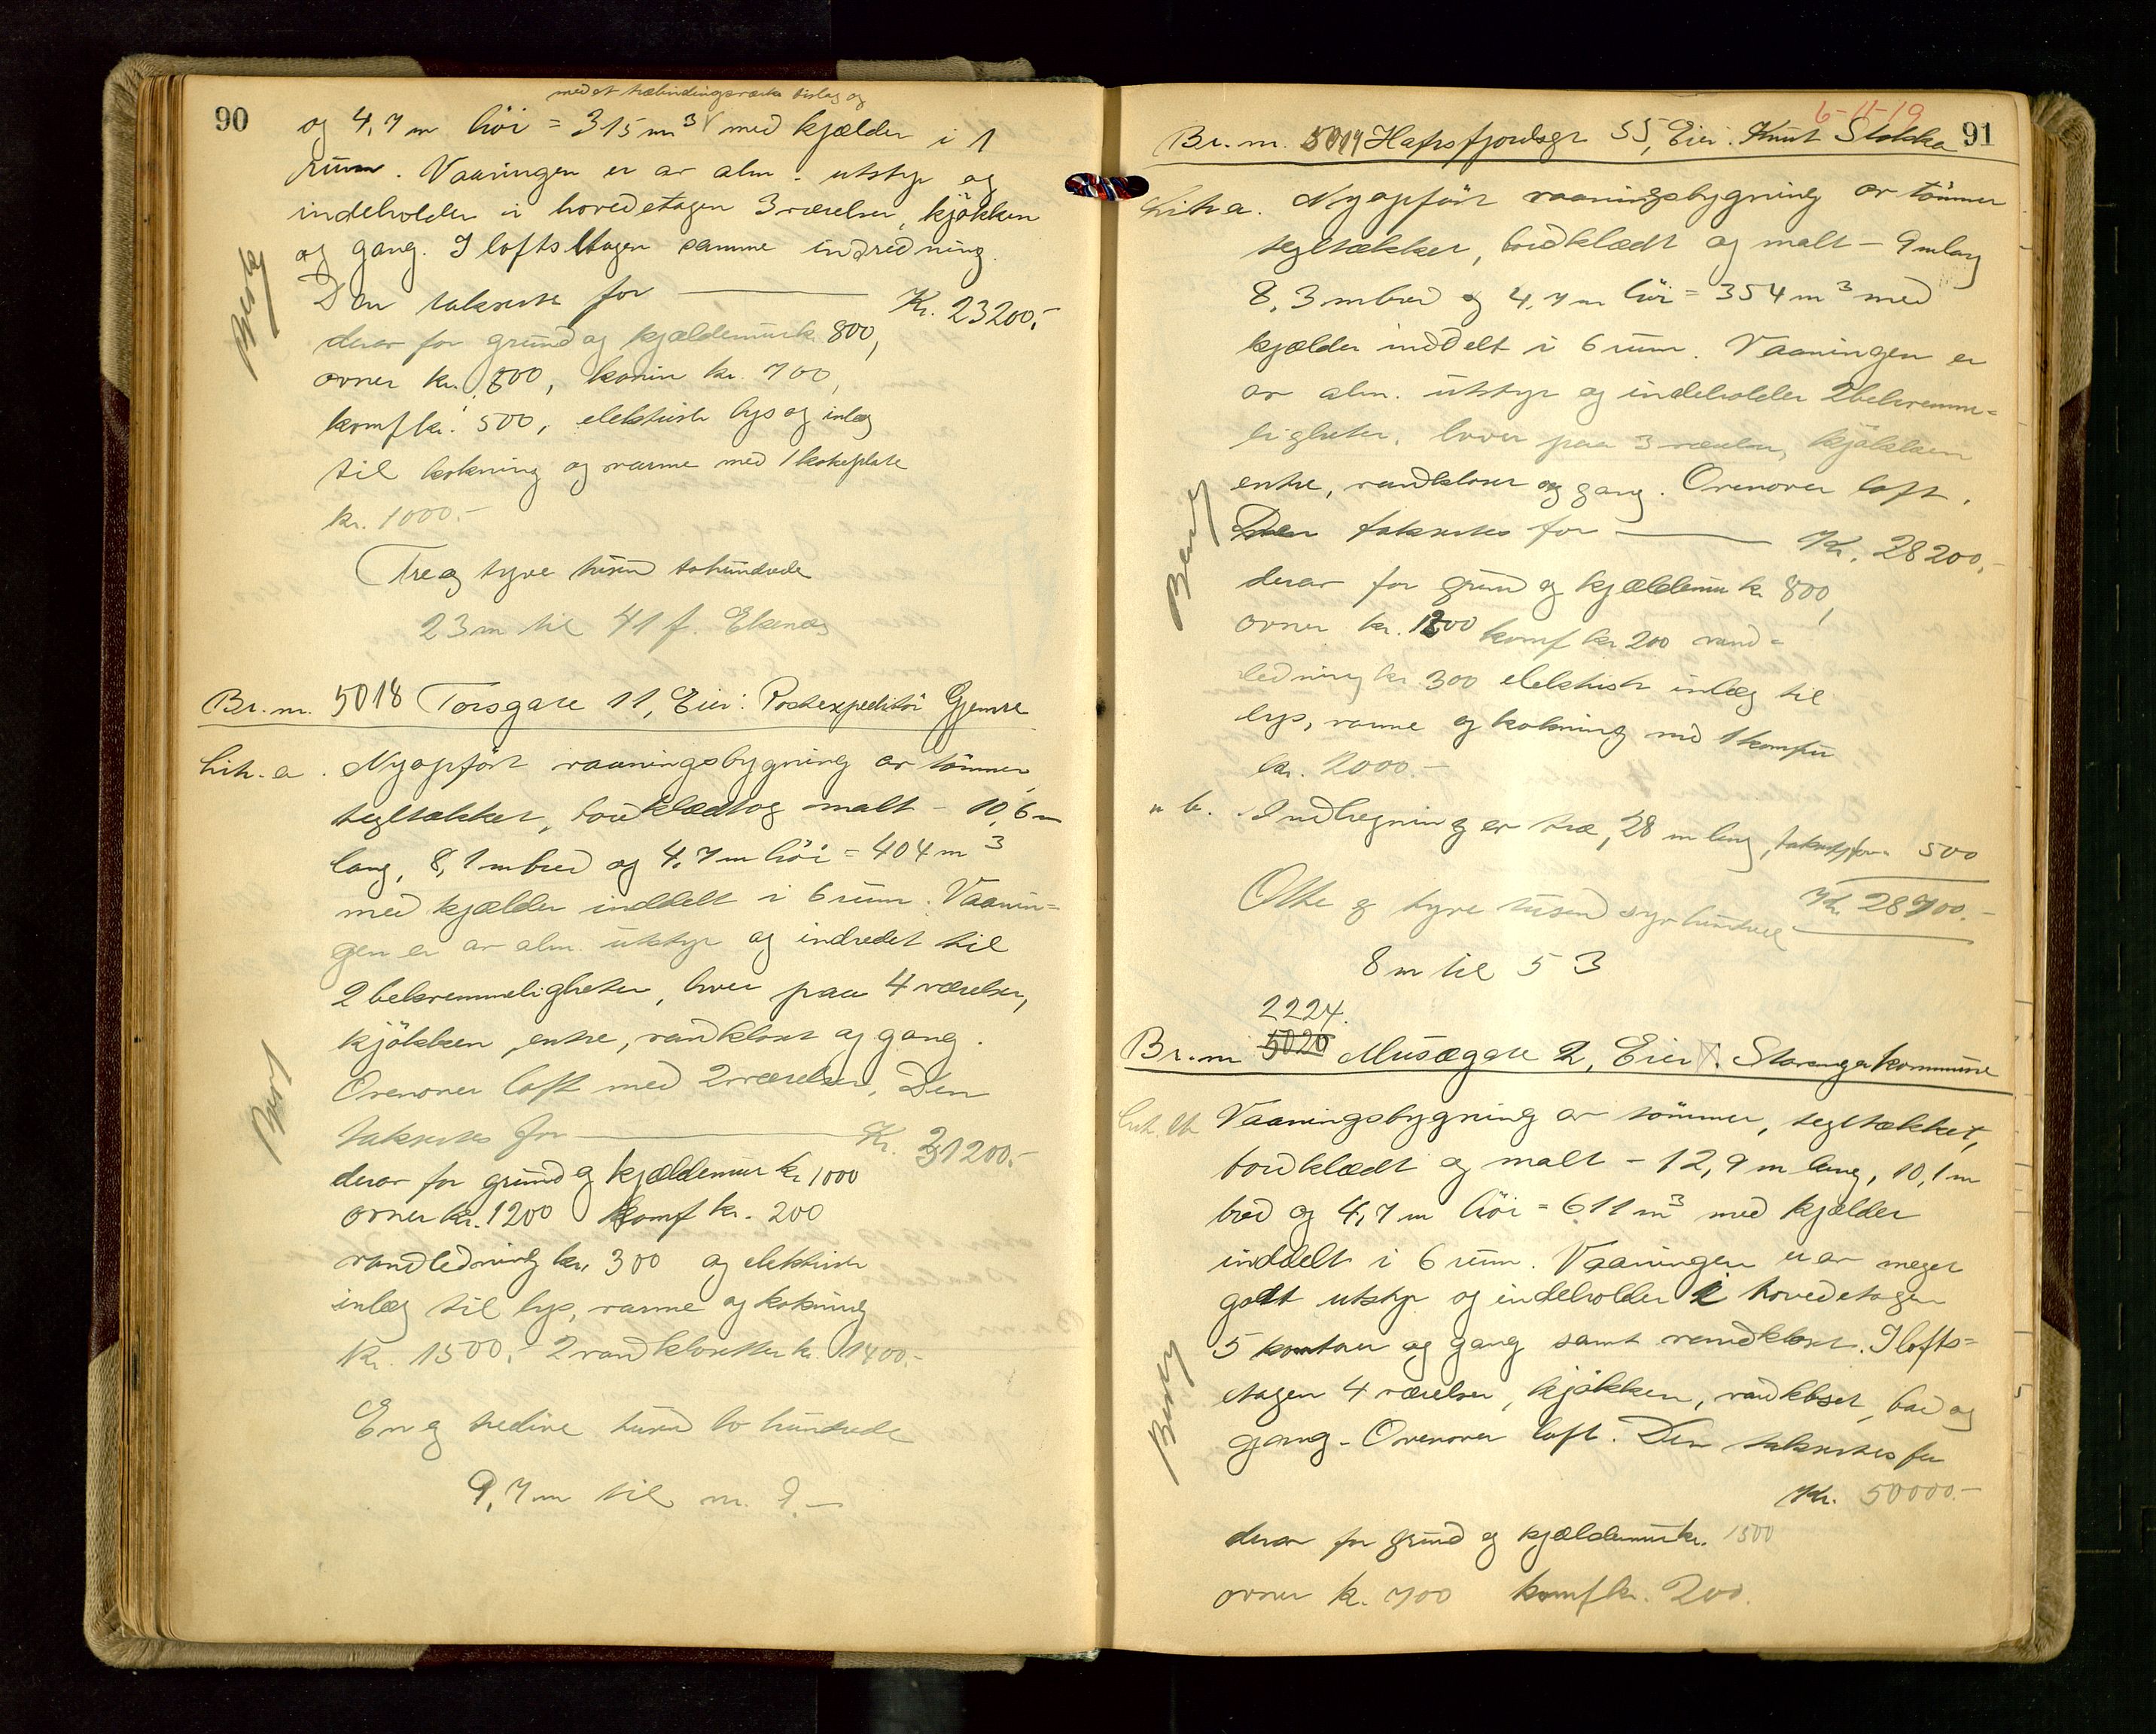 90
med et træbindingsverks tilbyg og
og 4,7 m höi = 315 m³ med kjælder i 1
rum. Vaaningen er av alm. utstyr og
indeholder i hovedetagen 3 værelser, kjøkken
og gang. I loftsetagen samme indredning.
Den takseres for Kr. 23200,-
derav for grund og kjældermur kr. 800,
ovner kr. 800, kamin kr. 700,
komf kr. 500, elektrisk lys og inlæg
til kokning og varme med 1 kokeplate
kr. 1000.-
Tre og tyve tusen tohundrede
23 m til 41 f. Ekenæs
Br. nr. 5018 Torsgate 11, Eier: Postexpeditör Gjemre
Lit. a. Nyopført vaaningsbygning av tömmer,
tegltækket, bordklædt og malt - 10,6 m
lang, 8,1 m bred og 4,7 m höi = 404 m³
med kjælder inddelt i 6 rum. Vaanin-
gen er av alm. utstyr og indredet til
2 bekvemmeligheter, hver paa 4 værelser,
kjökken, entre, vandkloset og gang.
Ovenover loft med 2 værelser. Den
takseres for Kr. 31200.-
derav for grund og kjældermur kr 1000
ovner kr. 1200 komf kr. 200
vandledning kr. 300 og elektrisk
inlæg til lys, varme og kokning
kr. 1500, 2 vandklosetter kr. 1400.-
En og tredive tusen to hundrede
9,7 m til nr. 9 -
6-11-19
91
Br. nr. 5019 Hafrsfjordsgt 55, Eier: Knut Stokka
Lit a. Nyopført vaaningsbygning av tömmer
tegltækket, bordklædt og malt - 9 m lang
8,3 m bred og 4,7 m höi = 354 m³ med
kjælder inddelt i 6 rum. Vaaningen er
av alm. utstyr og indeholder 2 bekvemme-
ligheter, hver paa 3 værelser, kjökken
entre, vandkloset og gang. Ovenover loft.
Den takseres for Kr. 28200.-
derav for grund og kjældermur kr 800,
ovner kr. 1200 komf kr 200 vand-
ledning kr. 300 elektrisk inlæg til
lys, varme og kokning med 1 komfur
kr. 2000.-
" b. Indhegning av træ, 28 m lang, takseres for 500
Kr. 28700.-
Otte og tyve tusen syv hundrede
8 m til 53
2224.
Br. nr 5020 Musegate 2, Eier: Stavanger kommune
Lit. a. Vaaningsbygning av tömmer, tegltækket,
bordklædt og malt - 12,9 m lang, 10,1 m
bred og 4,7 m höi = 611 m³ med kjælder
inddelt i 6 rum. Vaaningen er av meget
godt utstyr og indeholder i hovedetagen
5 kontorer og gang samt vandkloset. I lofts-
etagen 4 værelser, kjökken, vandkloset, bad og
gang. Ovenover loft. Den takseres for
Kr. 50000.-
derav for grund og kjældermur kr. 1500
ovner kr. 700 komf kr. 200.